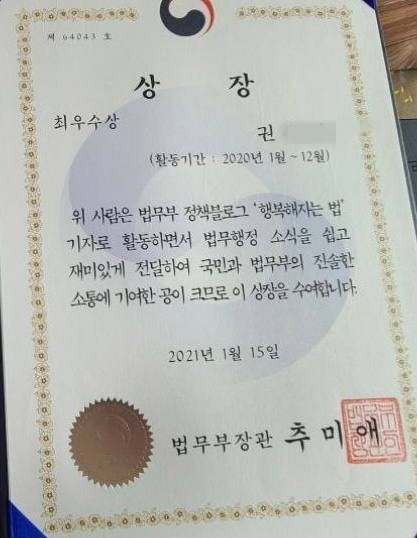 제 64043 호
상 장
최우수상
권
(활동기간 : 2020년 1월 ~ 12월)
위 사람은 법무부 정책블로그 '행복해지는 법'
기자로 활동하면서 법무행정 소식을 쉽고
재미있게 전달하여 국민과 법무부의 진솔한
소통에 기여한 공이 크므로 이 상장을 수여합니다.
2021년 1월 15일
법무부장관 추미애